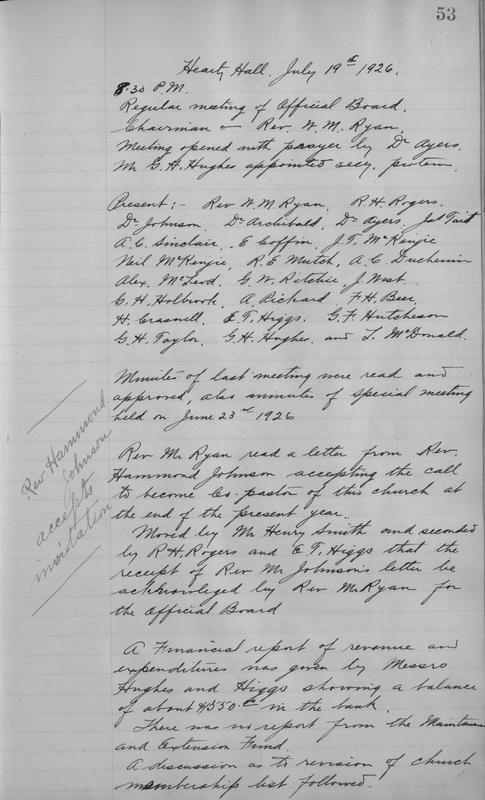 53
Heartz Hall. July 19th 1926.
8.30 P.M.
Regular meeting of Official Board.
Chairman – Rev. W. M. Ryan.
Meeting opened with prayer by Dr Ayers.
Mr G. H. Hughes appointed secy. protem.
Present; – Rev W. M. Ryan, R. H. Rogers.
Dr Johnson, Dr Archibald, Dr Ayers, Jas Tait
A. C. Sinclair, E Coffin, J. T. McKenzie
Neil McKenzie, R. E Mutch, A. C. Duchemin
Alex. McLeod, G. W. Ritchie J. West
G. H. Holbrook, A Pickard F. H. Beer,
H. Craswell, E. T. Higgs. G. F. Hutcheson
G. H. Taylor, G. H. Hughes, and L. McDonald.
Minutes of last meeting were read and
approved, also minutes of special meeting
held on June 23rd 1926
Rev Hammond
Johnson
accepts
invitation
Rev Mr Ryan read a letter from Rev.
Hammond Johnson accepting the call
to become Co. pastor of this church at
the end of the present year.
Moved by Mr Henry Smith and seconded
by R. H. Rogers and E. T. Higgs that the
receipt of Rev Mr Johnson's letter be
acknowleged by Rev. Mr Ryan for
the Official Board
A Financial report of revenue and
expenditures was given by Messrs
Hughes and Higgs showing a balance
of about $550.00 in the bank.
There was no report from the
and Extension Fund.
A discussion as to revision of church
membership list followed.